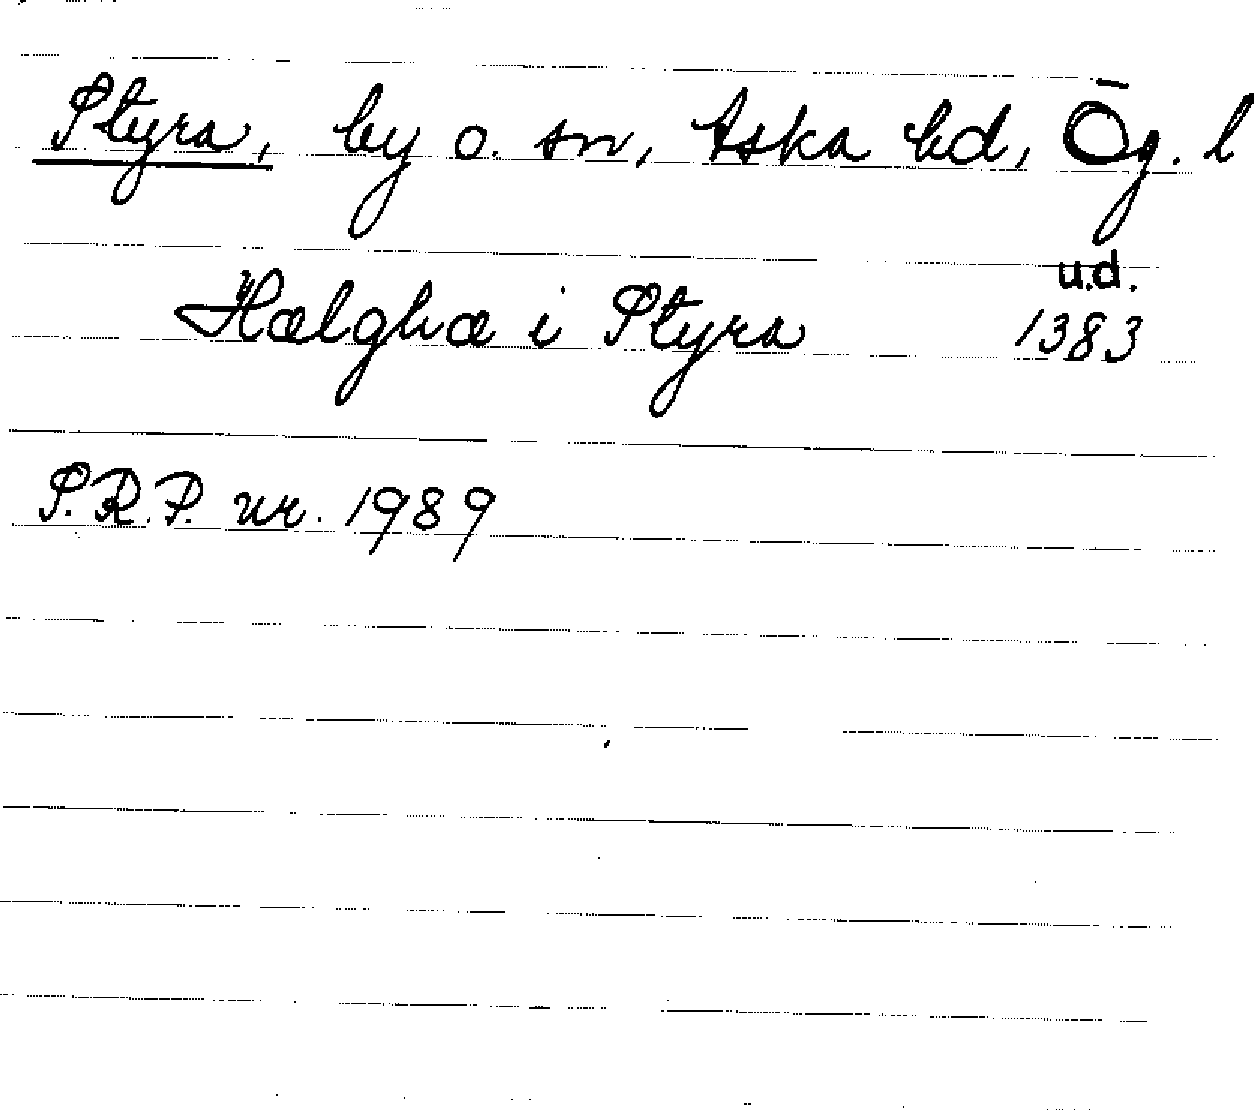 Styra, by o. sn, Aska hd, Ög. l
u.d.
Hælghæ i Styra 1383
S.R.P. nr. 1989